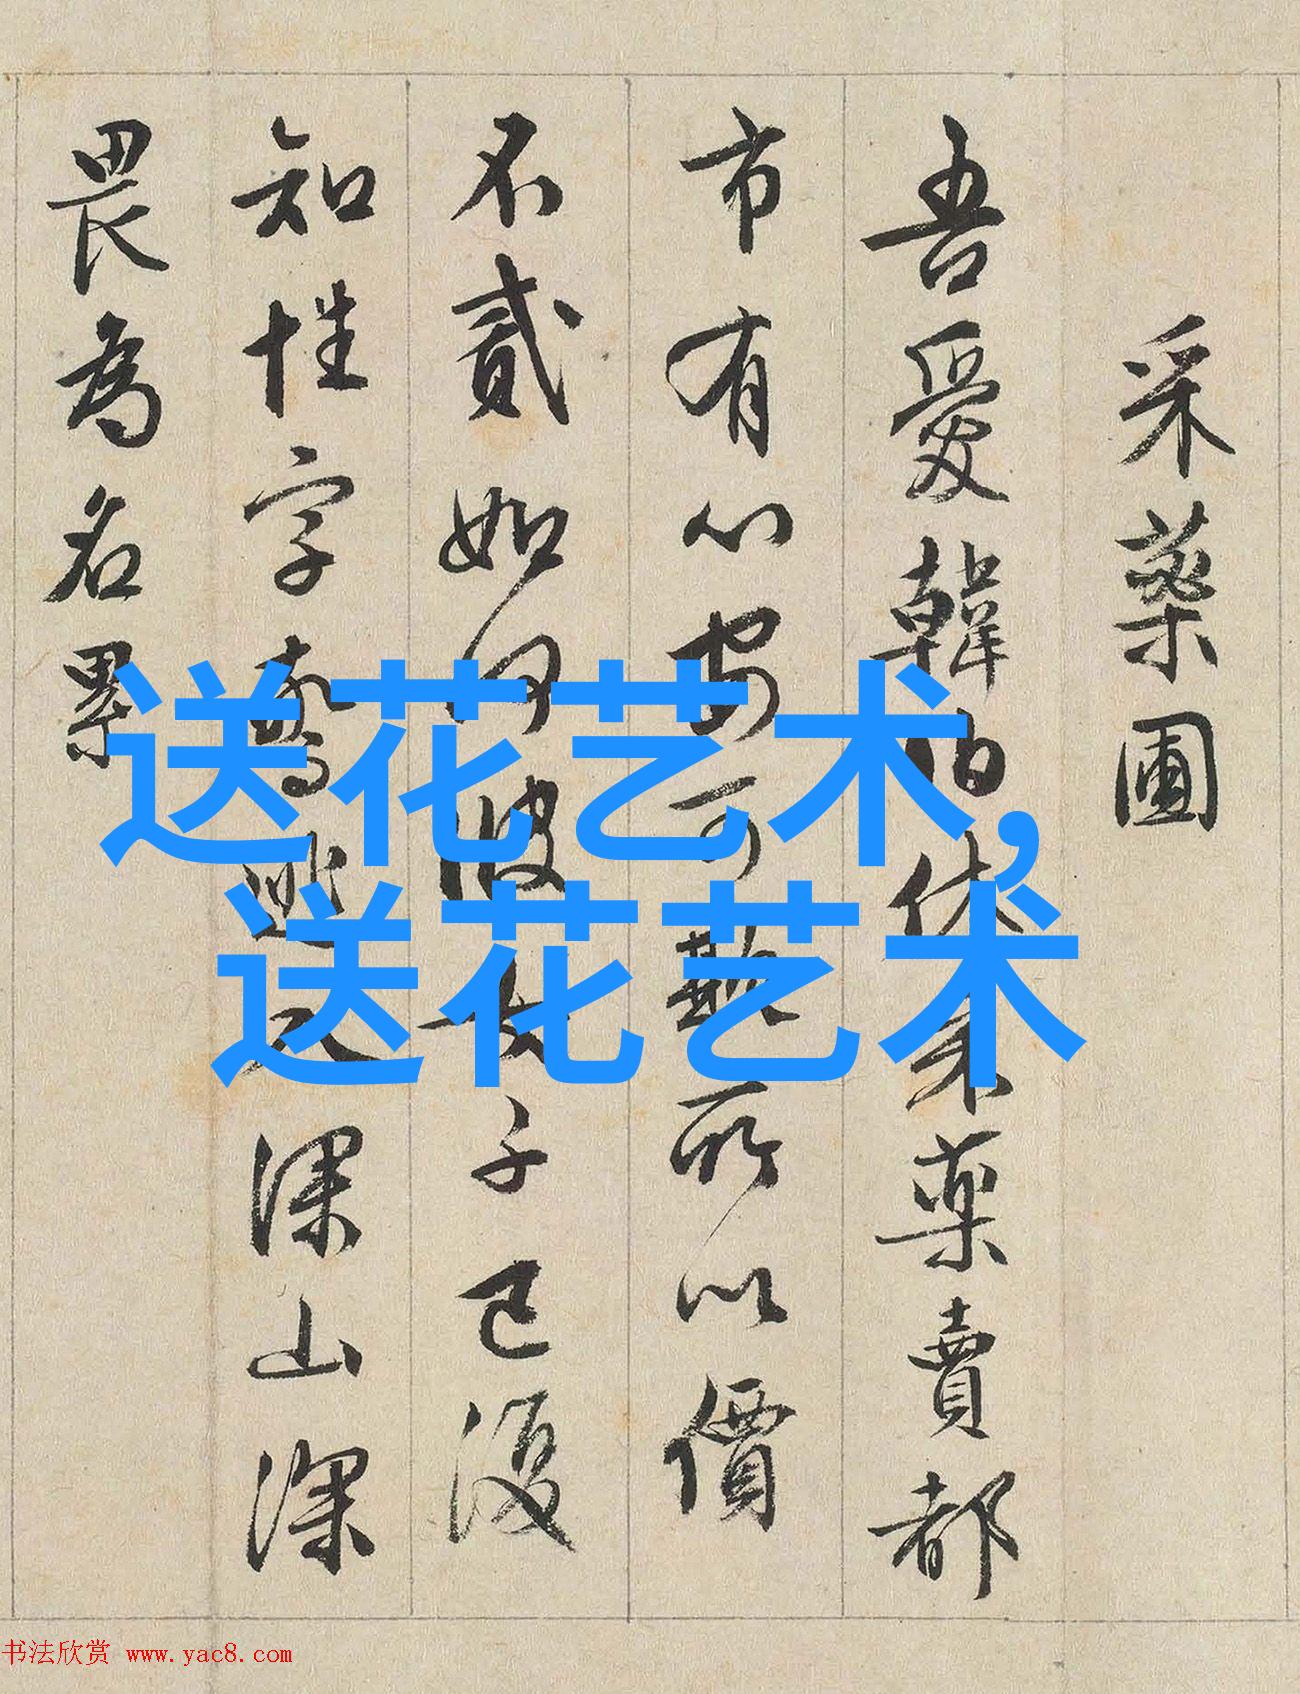 采藥圃
吾愛韓伯休采藥賣都
市有心安可欺所以價
不貳如何彼女子已復
知姓字驚逃入深山深
畏為名累
送花艺术,
送花艺术
书法欣赏 www.yac8.com